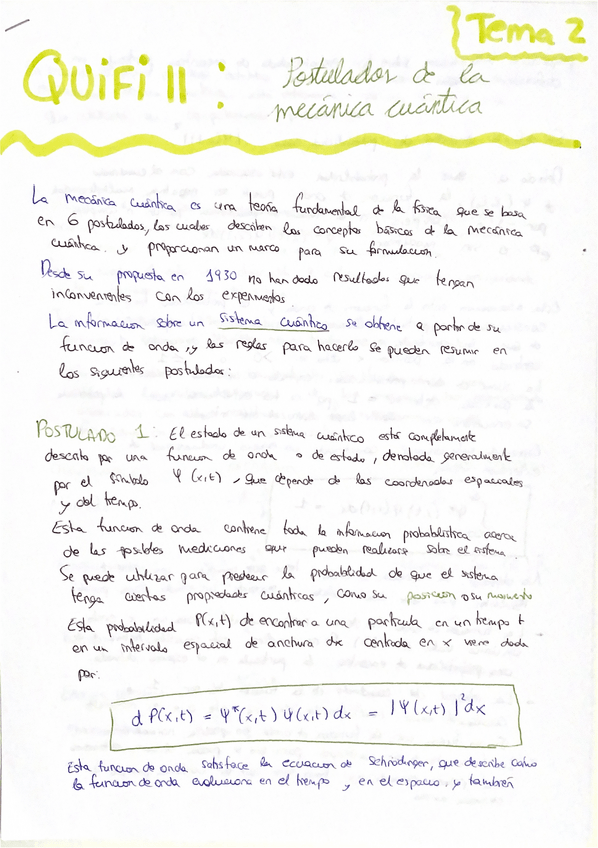 Tema 2
QUiFi II : Postulados de la
mecánica cuántica
La mecánica cuántica es una teoría fundamental de la física que se basa
en 6 postulados, los cuales describen los conceptos básicos de la mecánica
cuántica y proporcionan un marco para su formulacion.
Desde su propuesta en 1930 no han dado resultados que tengan
inconvenientes con los experimentos
La informacion sobre un sistema cuántico se obtiene a partir de su
funcion de onda, y las reglas para hacerlo se pueden resumir en
los siguientes postulados:
POSTULADO 1: El estado de un sistema cuántico esta completamente
descrito por una funcion de onda o de estado, denotada generalmente
por el símbolo Ψ (x,t), que depende de las coordenadas espaciales
y del tiempo.
Esta funcion de onda contiene toda la informacion probabilistica acerca
de las posibles mediciones que pueden realizarse sobre el sistema.
Se puede utilizar para predecir la probabilidad de que el sistema
tenga ciertas propiedades cuánticas, como su posicion o su momento
Esta probabilidad P(x,t) de encontrar a una particula en un tiempo t
en un intervalo espacial de anchura dx centrada en x viene dada
por:
d P(x,t) = Ψ*(x,t) Ψ(x,t) dx = |Ψ(x,t)|²dx
Esta funcion de onda satisface la ecuacion de Schrödinger, que describe cómo
la funcion de onda evoluciona en el tiempo y en el espacio, y también